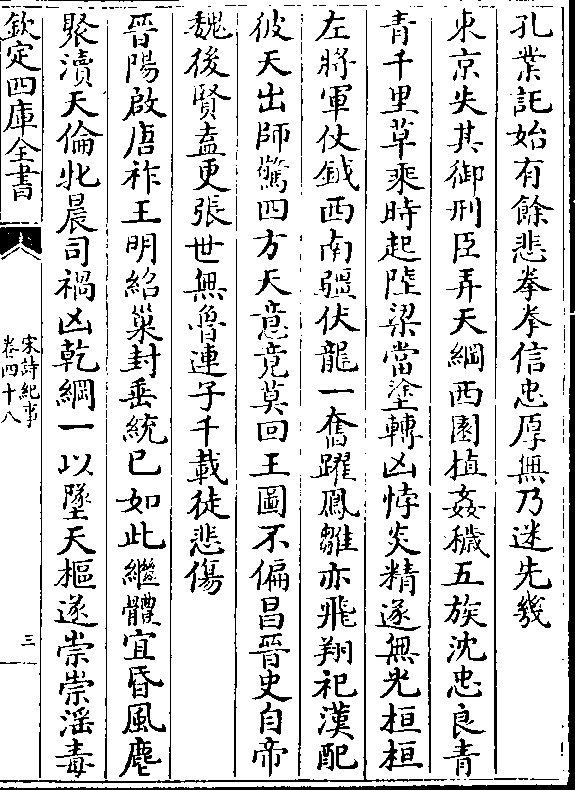 孔業託始有餘悲拳拳信忠厚無乃迷先幾
東京失其御刑臣弄天綱西園植姦穢五族沈忠良青
青千里草乘時起陸梁當塗轉凶悖炎精遂無光桓桓
左將軍仗鉞西南疆伏龍一奮躍鳳雛亦飛翔祀漢配
彼天出師驚四方天意竟莫回王圖不偏昌晉史自帝
魏後賢盍更張世無魯連子千載徒悲傷
晉陽啟唐祚王明紹巢封垂統已如此繼體宜昏風麀
聚瀆天倫牝晨司禍凶乾綱一以墜天樞遂崇崇滛毒
欽定四庫全書
宋詩紀事
卷四十八
三